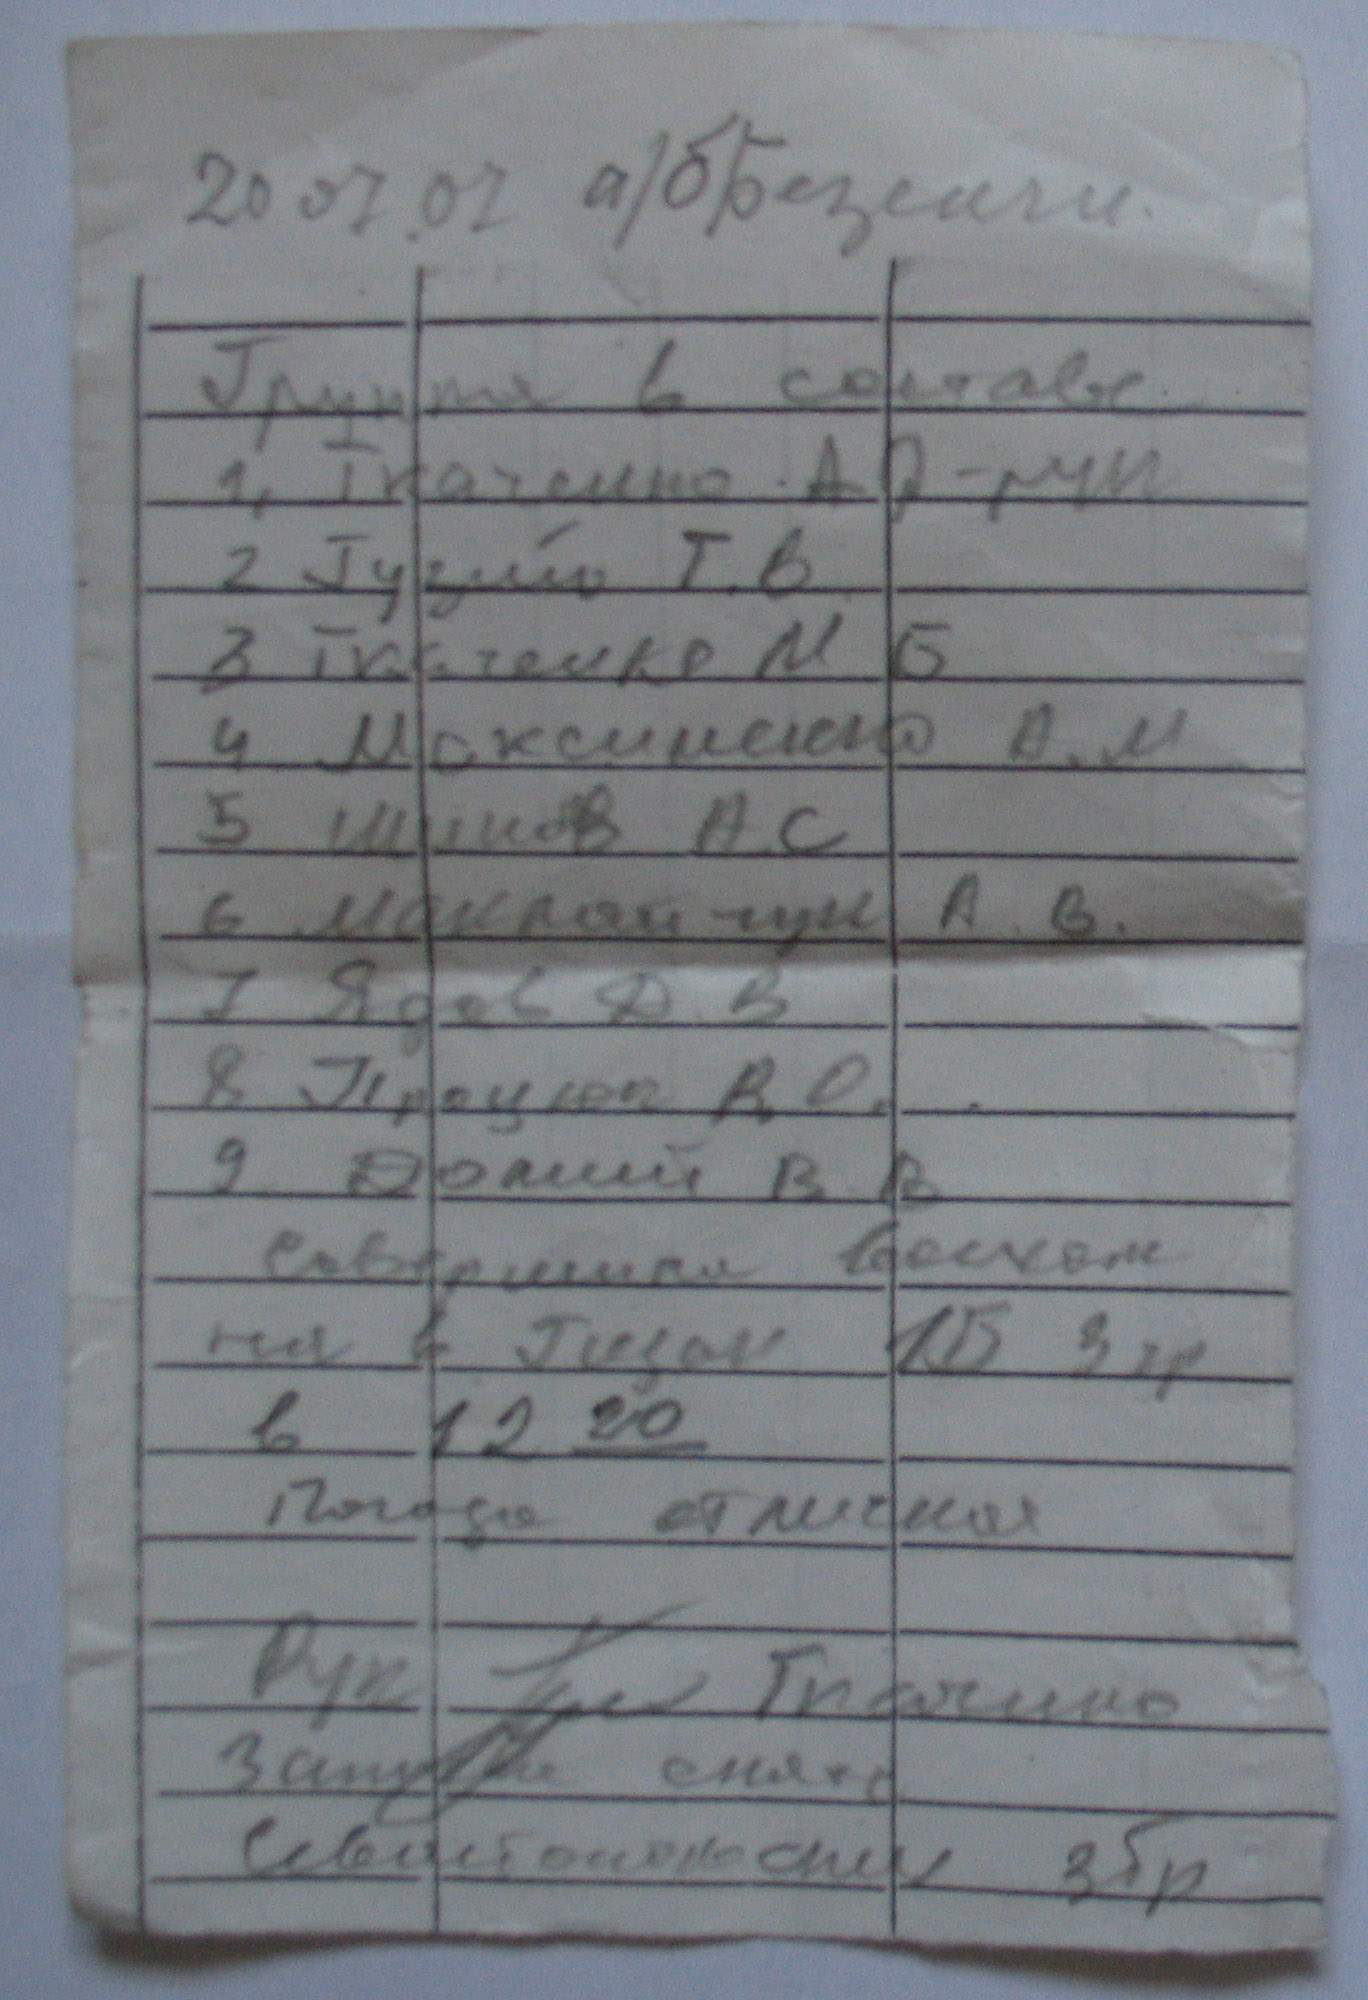 20 07.07 а/б Безенги.
Группа в составе
1, Ткаченко А Д - рук
2 Гузий Т.В.
3 Ткаченко М Б
4 Максименко А.М
5 Шипов А.С
6 А.В.
7 Ядов Д.В
8 Процюк В О.
9 Долий В.В
Совершила восхож
ния в Гидан 1Б 3 гр
в 12 20
Погода отличная
Рук Ткаченко
Записка снята
Севастополь